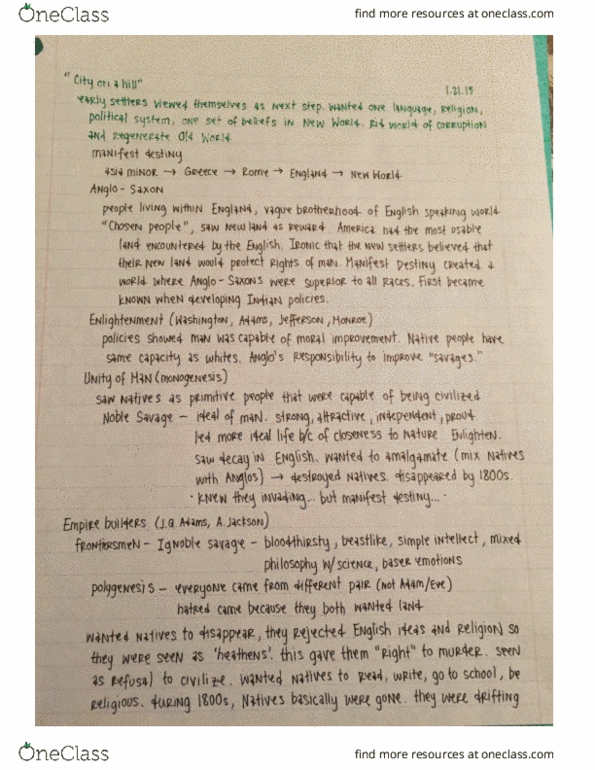 OneClass
find more resources at oneclass.com
"City on a hill"
1.21.15
early settlers viewed themselves as next step. wanted one language, religion,
political system, one set of beliefs in New World. Rid world of corruption
and regenerate Old World
manifest destiny
asia minor → Greece → Rome → England → New World
Anglo-Saxon
people living within England, vague brotherhood of English speaking world
"Chosen people", saw new land as reward. America had the most usable
land encountered by the English. Ironic that the new settlers believed that
their new land would protect rights of man. Manifest Destiny created a
world where Anglo-Saxons were superior to all races. First became
known when developing Indian policies.
Enlightenment (Washington, Adams, Jefferson, Monroe)
policies showed man was capable of moral improvement. Native people have
same capacity as whites. Anglo's responsibility to improve "savages."
Unity of Man (monogenesis)
saw natives as primitive people that were capable of being civilized
Noble Savage - ideal of man. strong, attractive, independent, proud
led more ideal life b/c of closeness to nature. Enlighten.
saw decay in English. wanted to amalgamate (mix natives
with Anglos) → destroyed natives. disappeared by 1800s.
· knew they invading... but manifest destiny... ·
Empire builders (J.Q. Adams, A. Jackson)
frontiersmen - Ignoble savage - bloodthirsty, beastlike, simple intellect, mixed
philosophy w/science, baser emotions
polygenesis - everyone came from different pair (not Adam/Eve)
hatred came because they both wanted land
wanted natives to disappear, they rejected English ideas and religion so
they were seen as 'heathens'. this gave them "right" to murder. seen
as refusal to civilize. wanted natives to read, write, go to school, be
religious. during 1800s, Natives basically were gone. they were drifting
OneClass
find more resources at oneclass.com